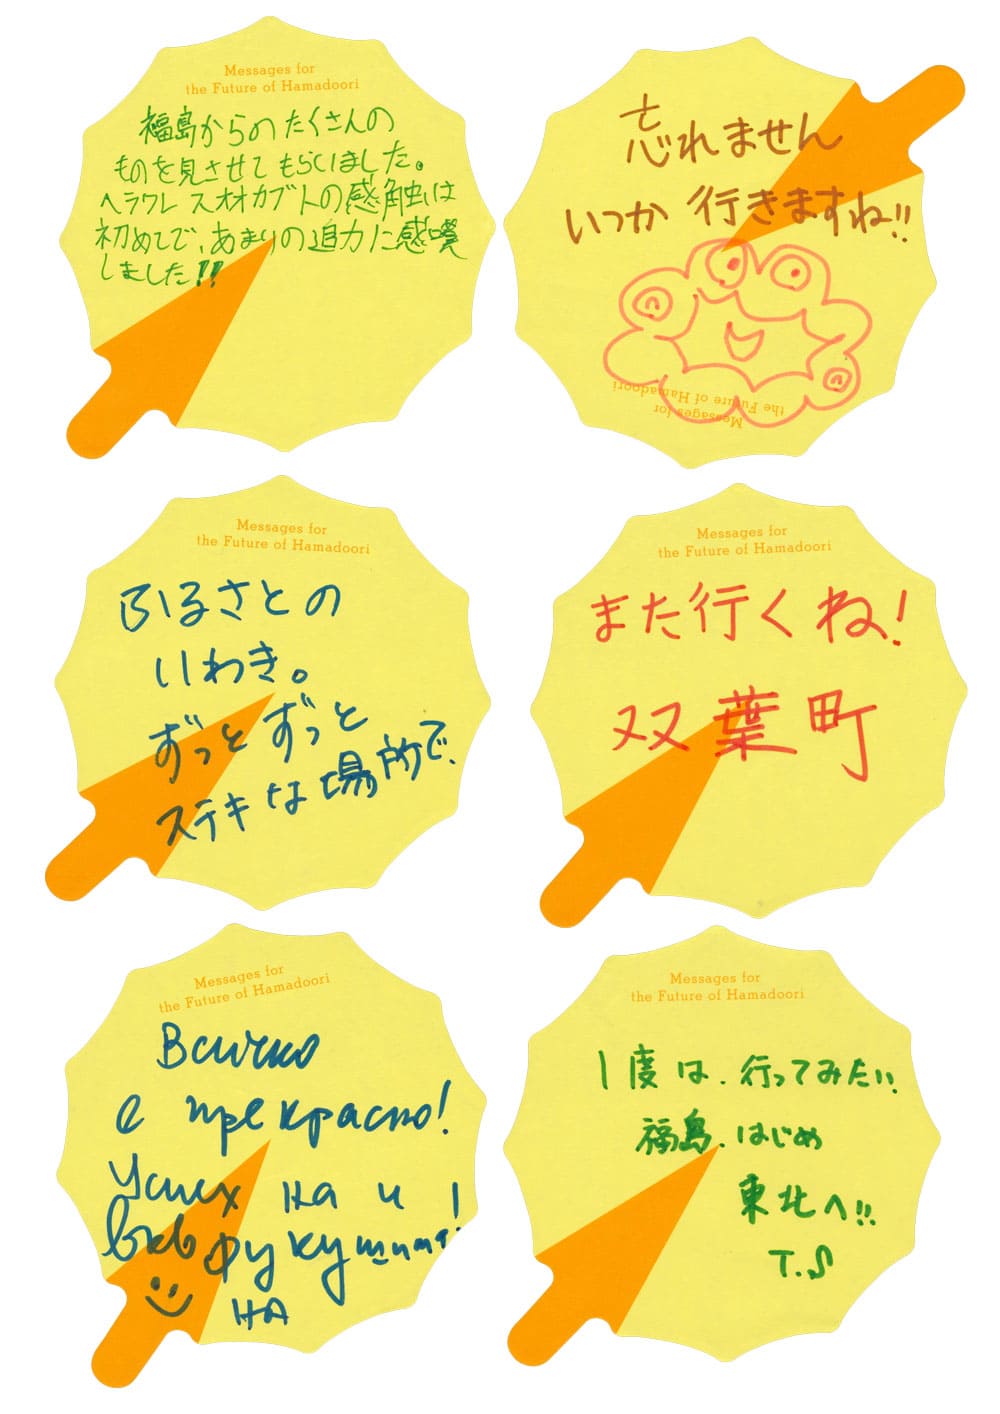 Messages for
the Future of Hamadoori
福島からのたくさんの
ものを見させてもらいました。
ヘラクレスオオカブトの感触は
初めてで、あまりの迫力に感嘆
しました!!
忘れません
いつか 行きますね!!
Messages for
the Future of Hamadoori
Messages for
the Future of Hamadoori
ふるさとの
いわき。
ずっとずっと
ステキな場所で、
Messages for
the Future of Hamadoori
また行くね!
双葉町
Messages for
the Future of Hamadoori
Всичко
е прекрасно!
Успех на и
във Фукушима!
на
Messages for
the Future of Hamadoori
1度は、行ってみたい、
福島、はじめ
東北へ!!
T.S